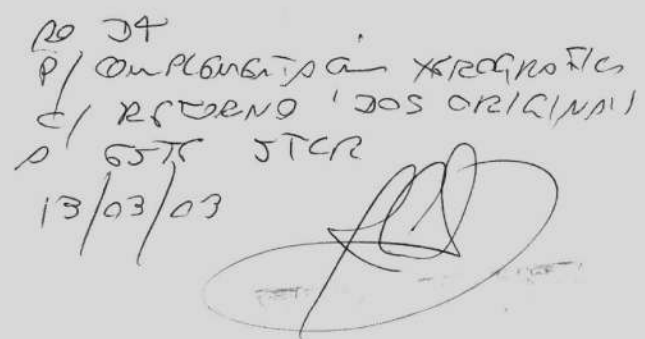 AO D4
P/ COMPLEMENTAÇÃO XEROGRÁFICA
C/ RETORNO DOS ORIGINAIS
A ESTE STCR
13/03/03